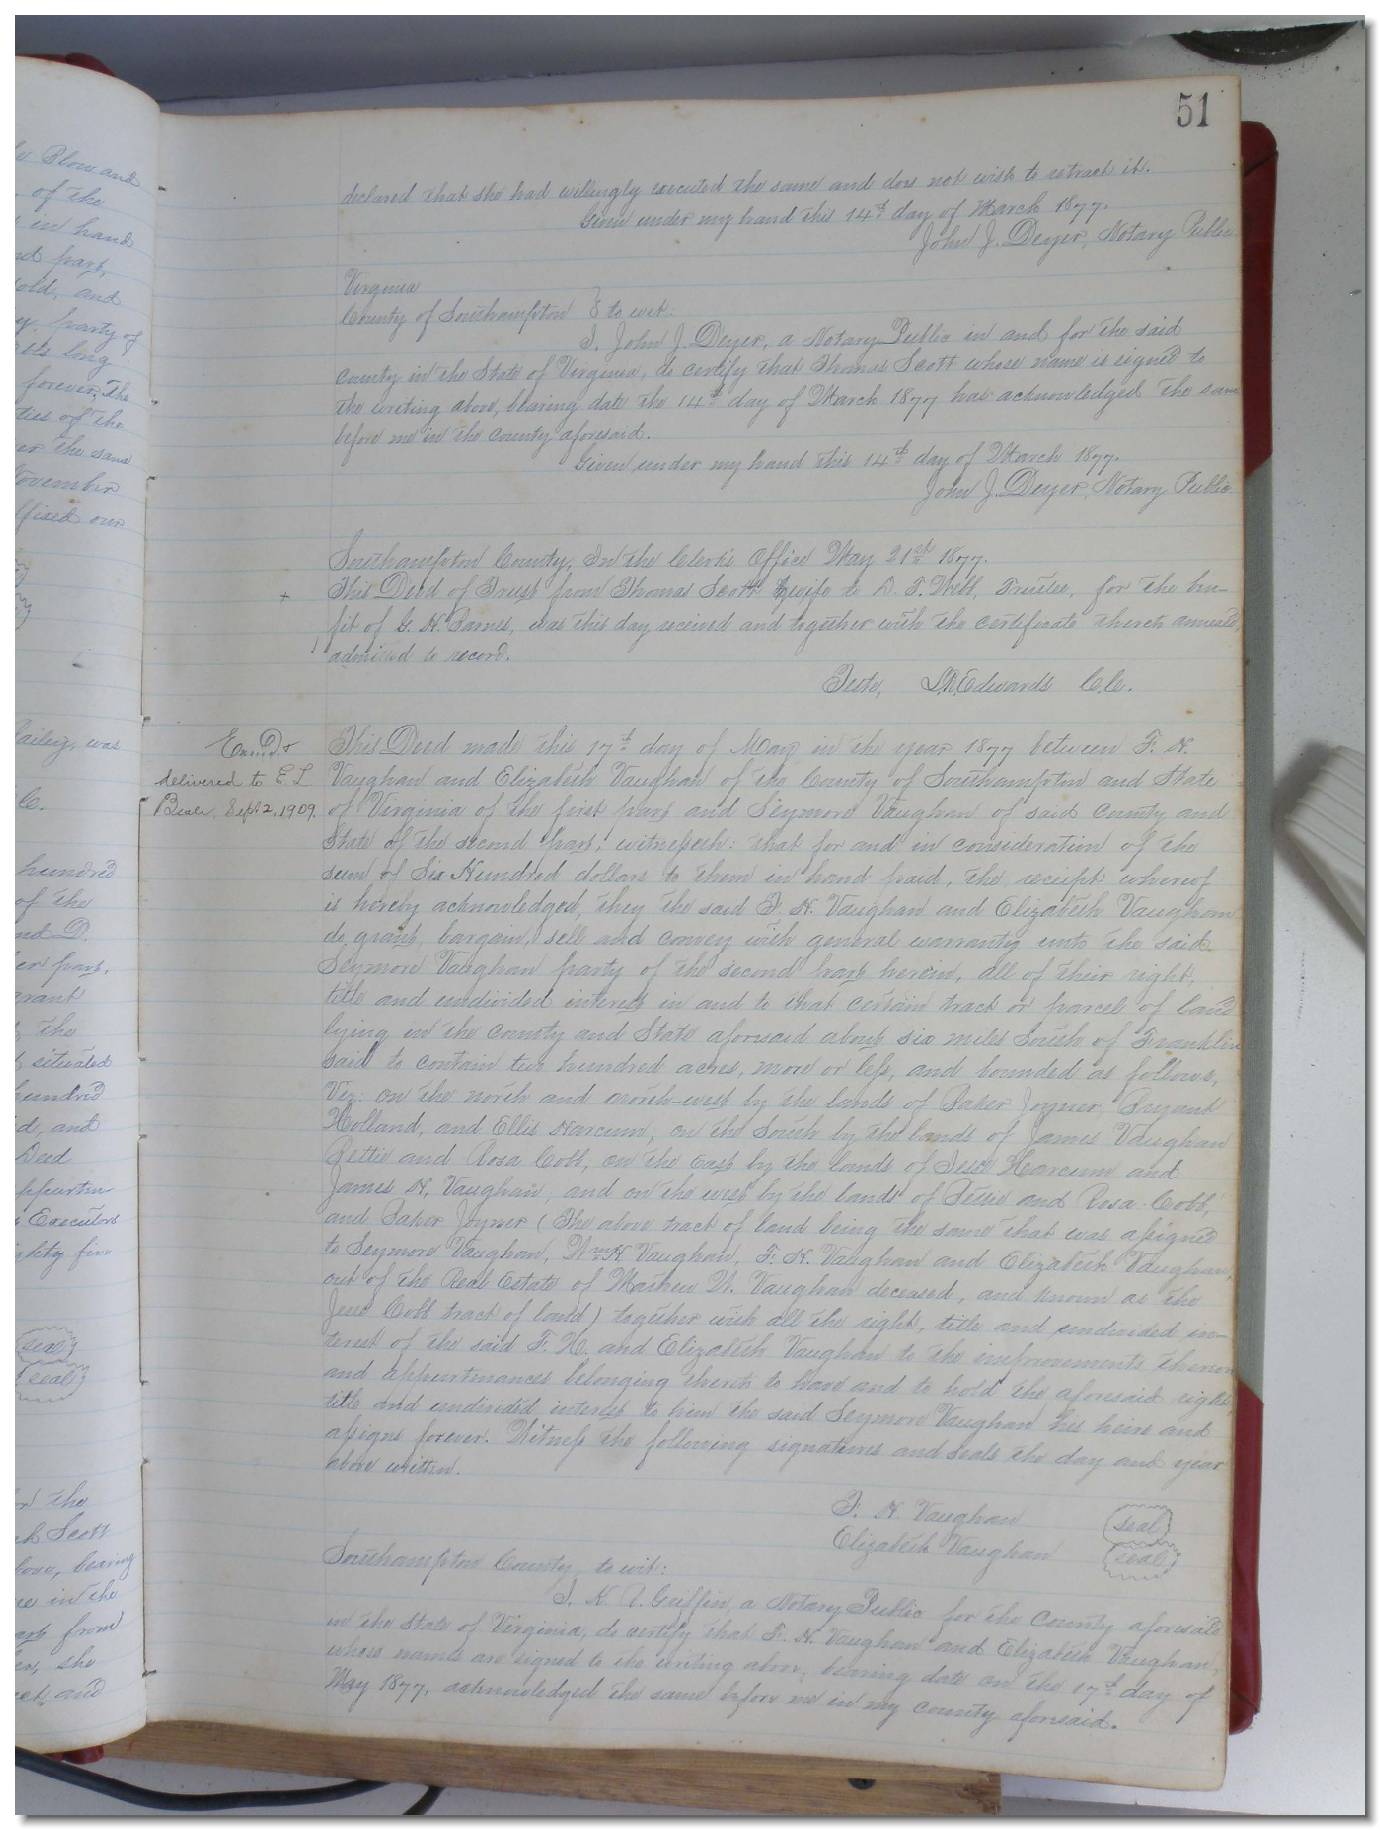 51
declared that she had willingly executed the same and does not wish to retract it.
Given under my hand this 14th day of March 1877.
John J. Deyer, Notary Public
Virginia
County of Southampton } to wit:
I, John J. Deyer, a Notary Public in and for the said
county in the State of Virginia, do certify that Thomas Scott whose name is signed to
the writing above, bearing date the 14th day of March 1877 has acknowledged the same
before me in the county aforesaid.
Given under my hand this 14th day of March 1877.
John J. Deyer, Notary Public
Southampton County, In the Clerk's Office May 21st 1877.
+ This Deed of Trust from Thomas Scott & wife to D. F. Webb, Trustee, for the bene-
fit of G. H. Barnes, was this day received and together with the certificate thereto annexed,
admitted to record.
Teste, L.R. Edwards C.C.
Exmd &
delivered to E L
Beale, Sept 2, 1909.
This Deed made this 17th day of May in the year 1877 between F. H.
Vaughan and Elizabeth Vaughan of the County of Southampton and State
of Virginia of the first part and Seymore Vaughan of said county and
State of the second part; witnesseth: that for and in consideration of the
sum of Six Hundred dollars to them in hand paid, the receipt whereof
is hereby acknowledged, they the said F. H. Vaughan and Elizabeth Vaughan
do grant, bargain, sell and convey with general warranty unto the said
Seymore Vaughan party of the second part herein, all of their right,
title and undivided interest in and to that certain tract or parcel of land
lying in the county and State aforesaid about six miles South of Franklin
said to contain two hundred acres, more or less, and bounded as follows,
Viz: on the north and north-west by the lands of Baker Joyner, Bryant
Holland, and Ellis Harcum, on the South by the lands of James Vaughan
Bettie and Rosa Cobb, on the east by the lands of Jesse Harcum and
James H. Vaughan, and on the west by the lands of Bettie and Rosa Cobb,
and Baker Joyner (The above tract of land being the same that was assigned
to Seymore Vaughan, Wm H Vaughan, F. H. Vaughan and Elizabeth Vaughan,
out of the Real Estate of Mathew W. Vaughan deceased, and known as the
Jesse Cobb tract of land) together with all the right, title and undivided in-
terest of the said F. H. and Elizabeth Vaughan to the improvements thereon
and appurtenances belonging thereto to have and to hold the aforesaid right,
title and undivided interest to him the said Seymore Vaughan his heirs and
assigns forever. Witness the following signatures and seals the day and year
above written.
F. H. Vaughan (seal)
Elizabeth Vaughan (seal)
Southampton County, to wit:
I, K. Griffin, a Notary Public for the County aforesaid
in the State of Virginia, do certify that F. H. Vaughan and Elizabeth Vaughan,
whose names are signed to the writing above, bearing date on the 17th day of
May 1877, acknowledged the same before me in my county aforesaid.